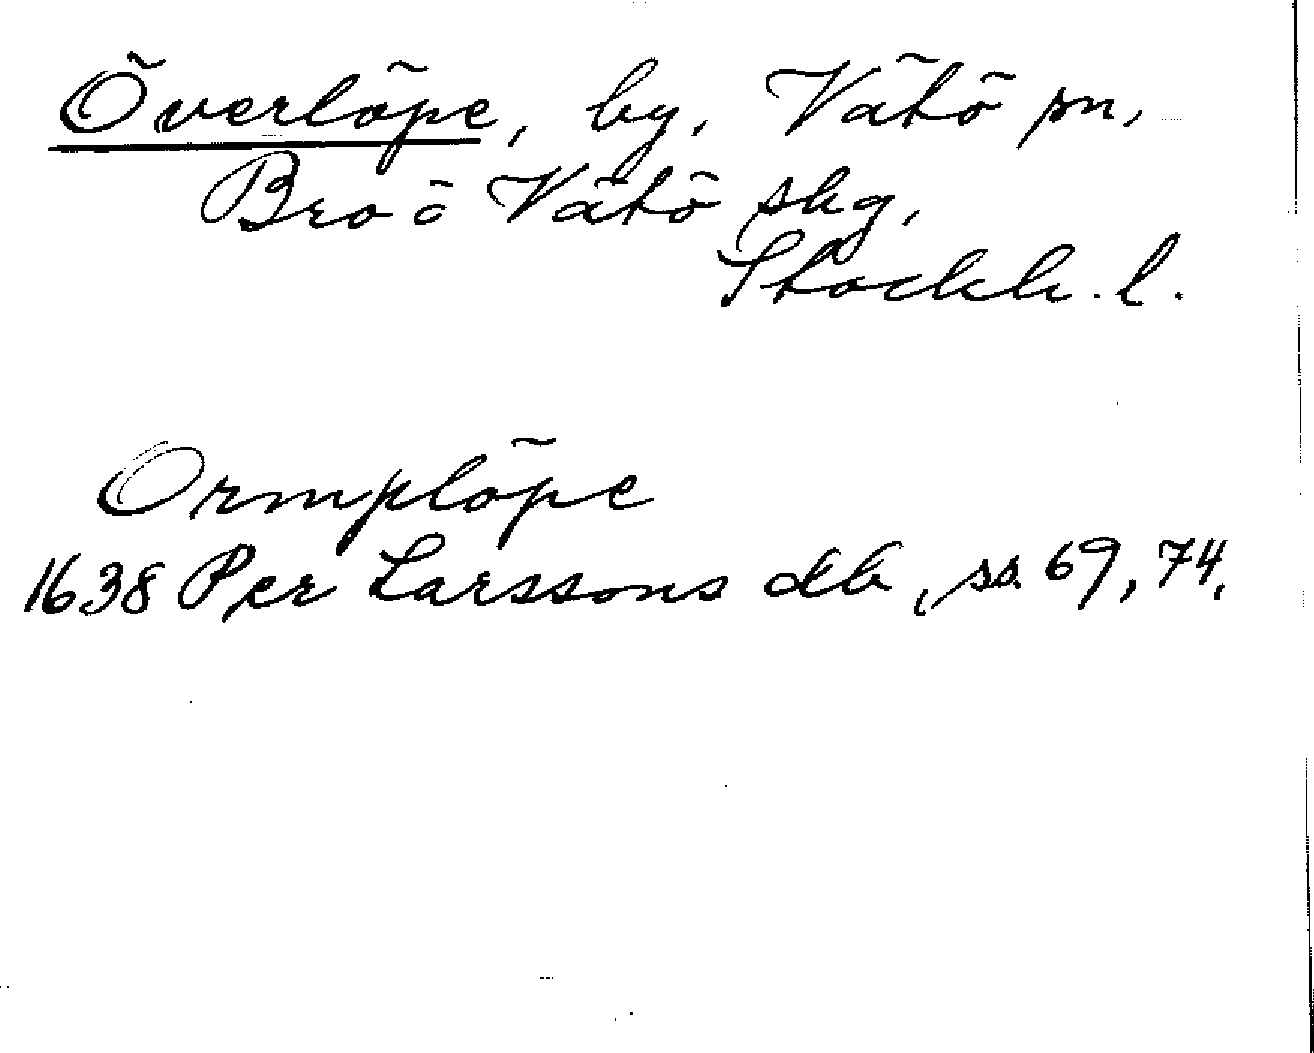 Överlöpe, by, Vätö sn,
Bro o Vätö skg,
Stockh. l.
Ormplöpe
1638 Per Larssons db, ss. 69, 74,